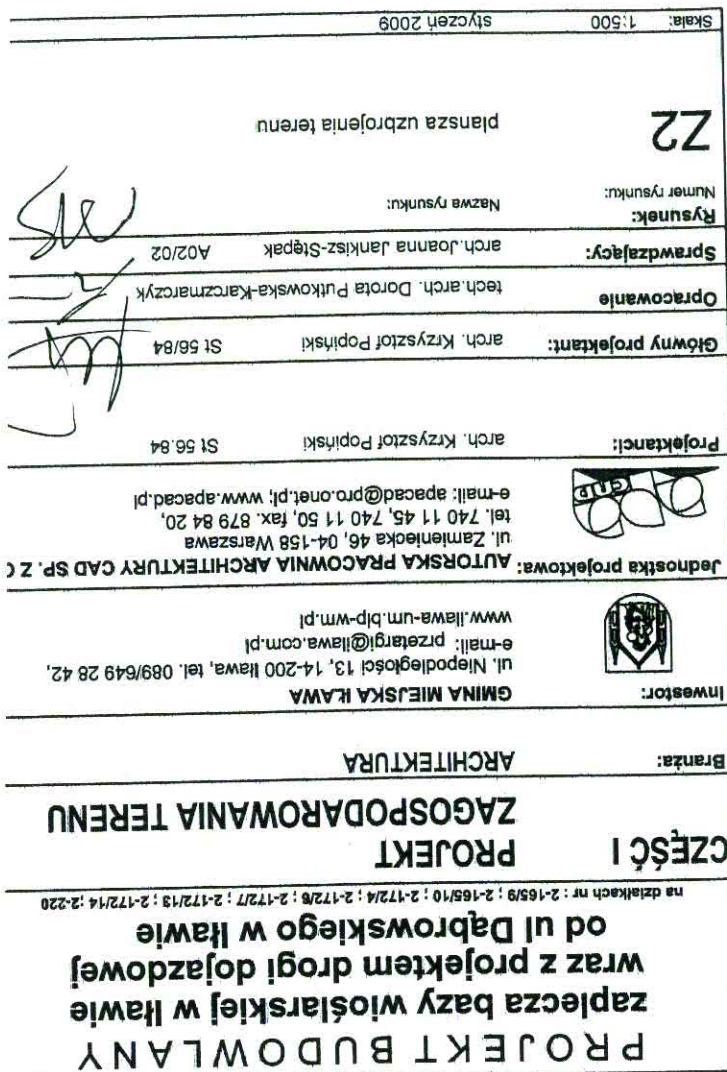 PROJEKT BUDOWLANY
zaplecza bazy wioślarskiej w Iławie
wraz z projektem drogi dojazdowej
od ul Dąbrowskiego w Iławie
na działkach nr : 2-165/9 ; 2-165/10 ; 2-172/4 ; 2-172/6 ; 2-172/7 ; 2-172/13 ; 2-172/14 ; 2-220
CZĘŚĆ I PROJEKT
ZAGOSPODAROWANIA TERENU
Branża: ARCHITEKTURA
Inwestor: GMINA MIEJSKA IŁAWA
ul. Niepodległości 13, 14-200 Iława, tel. 089/649 28 42,
e-mail: przetargi@ilawa.com.pl
www.ilawa-um.bip-wm.pl
Jednostka projektowa: AUTORSKA PRACOWNIA ARCHITEKTURY CAD SP. Z O
ul. Zamieniecka 46, 04-158 Warszawa
tel. 740 11 45, 740 11 50, fax. 879 84 20,
e-mail: apacad@pro.onet.pl; www.apacad.pl
Projektanci: arch. Krzysztof Popiński St 56.84
Główny projektant: arch. Krzysztof Popiński St 56/84
Opracowanie tech.arch. Dorota Putkowska-Karczmarczyk
Sprawdzający: arch.Joanna Jankisz-Stępak A02/02
Rysunek:
Numer rysunku: Nazwa rysunku:
Z2 plansza uzbrojenia terenu
Skala: 1:500 styczeń 2009